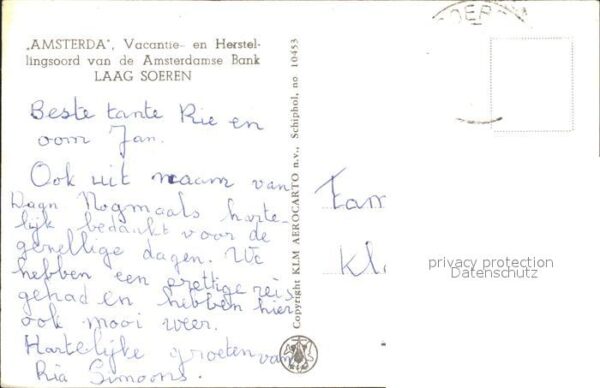 „AMSTERDA", Vacantie- en Herstel-
lingsoord van de Amsterdamse Bank
LAAG SOEREN
Beste tante Rie en
oom Jan.
Ook uit naam van
Dagn Nogmaals harte-
lijk bedankt voor de
gezellige dagen. We
hebben een prettige reis
gehad en hebben hier
ook mooi weer.
Hartelijke groeten van
Ria Simoons.
Copyright KLM AEROCARTO n.v., Schiphol, no 10453
Fam
Kl
privacy protection
Datenschutz